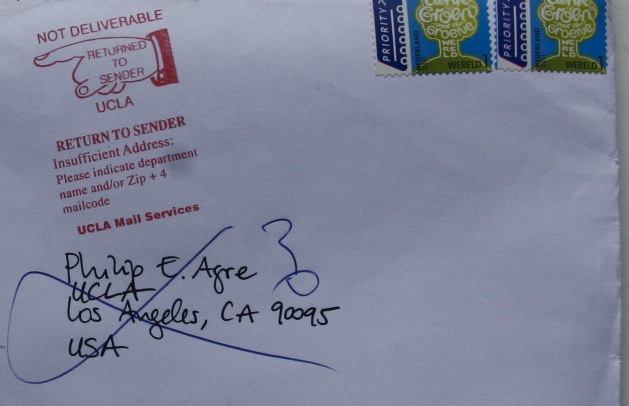 NOT DELIVERABLE
RETURNED
TO
SENDER
UCLA
RETURN TO SENDER
Insufficient Address:
Please indicate department
name and/or Zip + 4
mailcode
UCLA Mail Services
PRIORITY
NEDERLAND
Groen
Groene
WERELD 1
PRIORITY
NEDERLAND
Groen
Groene
WERELD 1
Philip E. Agre
UCLA
Los Angeles, CA 90095
USA